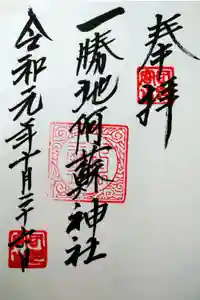 奉拝
一勝地阿蘇神社
令和元年十月二十七日